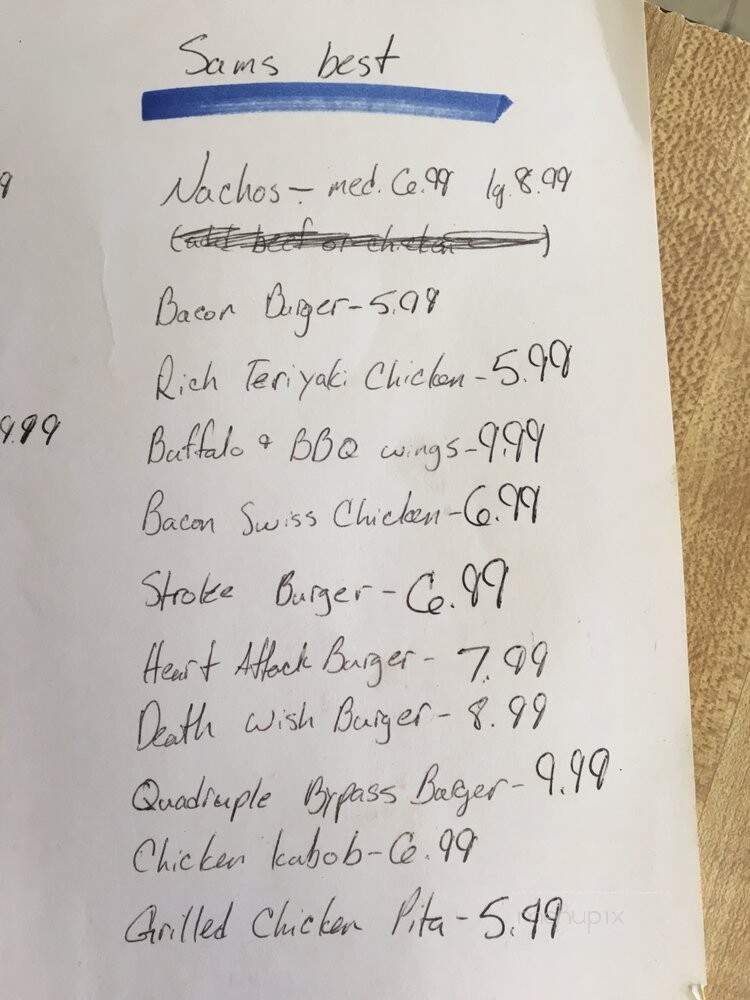 Sams best
Nachos - med. 6.99 lg. 8.99
(add beef or chicken)
Bacon Burger - 5.99
Rich Teriyaki Chicken - 5.99
9.99
Buffalo & BBQ wings - 9.99
Bacon Swiss Chicken - 6.99
Stroke Burger - 6.99
Heart Attack Burger - 7.99
Death Wish Burger - 8.99
Quadruple Bypass Burger - 9.99
Chicken kabob - 6.99
Grilled Chicken Pita - 5.99